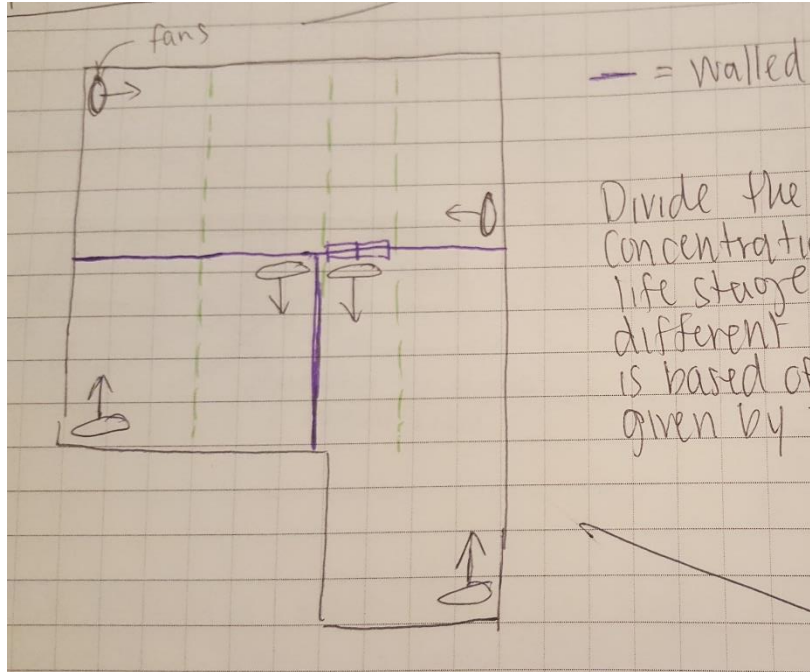 fans
— = Walled
Divide the
Concentrati
life stage
different
is based of
given by